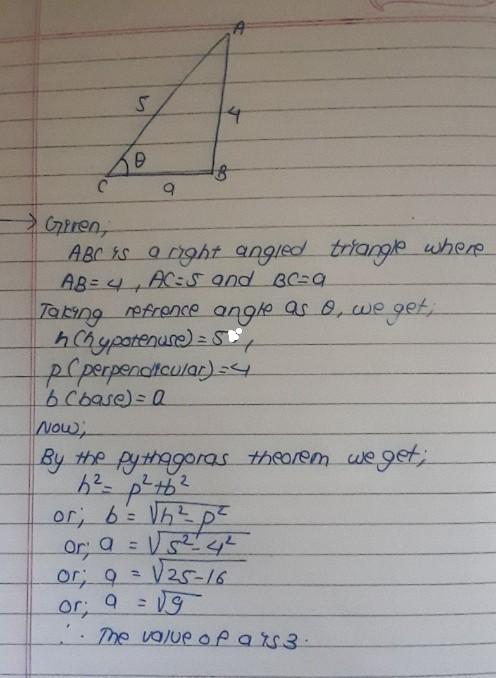 A
5
4
θ
C
B
a
→ Given;
ABC is a right angled triangle where
AB=4, AC=5 and BC=a
Taking refrence angle as θ, we get;
h(hypotenuse)=5,
p(perpendicular)=4
b(base)=a
Now;
By the pythagoras theorem we get;
h²= p²+b²
or; b = √h²-p²
or; a = √5²-4²
or; a = √25-16
or; a = √9
∴ The value of a is 3.